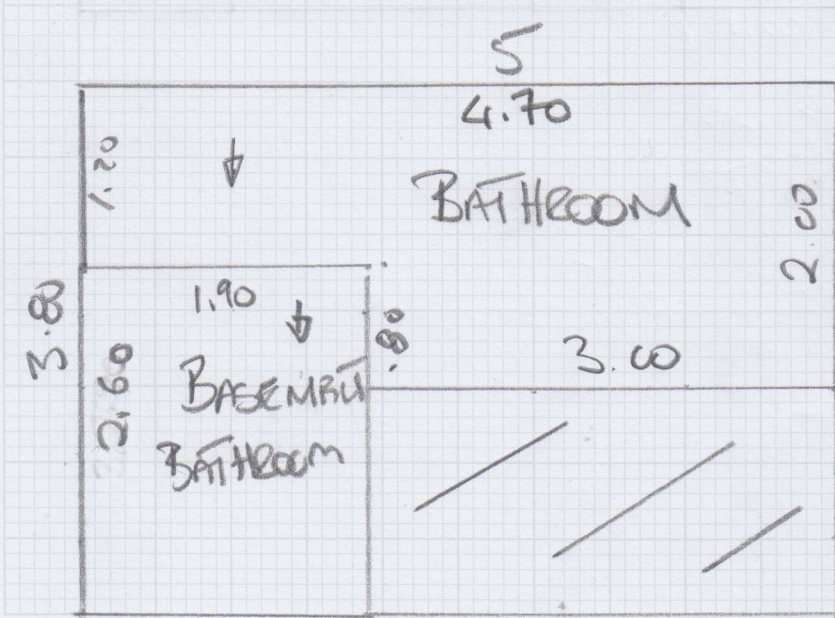 5
4.70
1.20
BATHROOM
2.00
1.90
.80
3.80
3.00
2.60
BASEMENT
BATHROOM